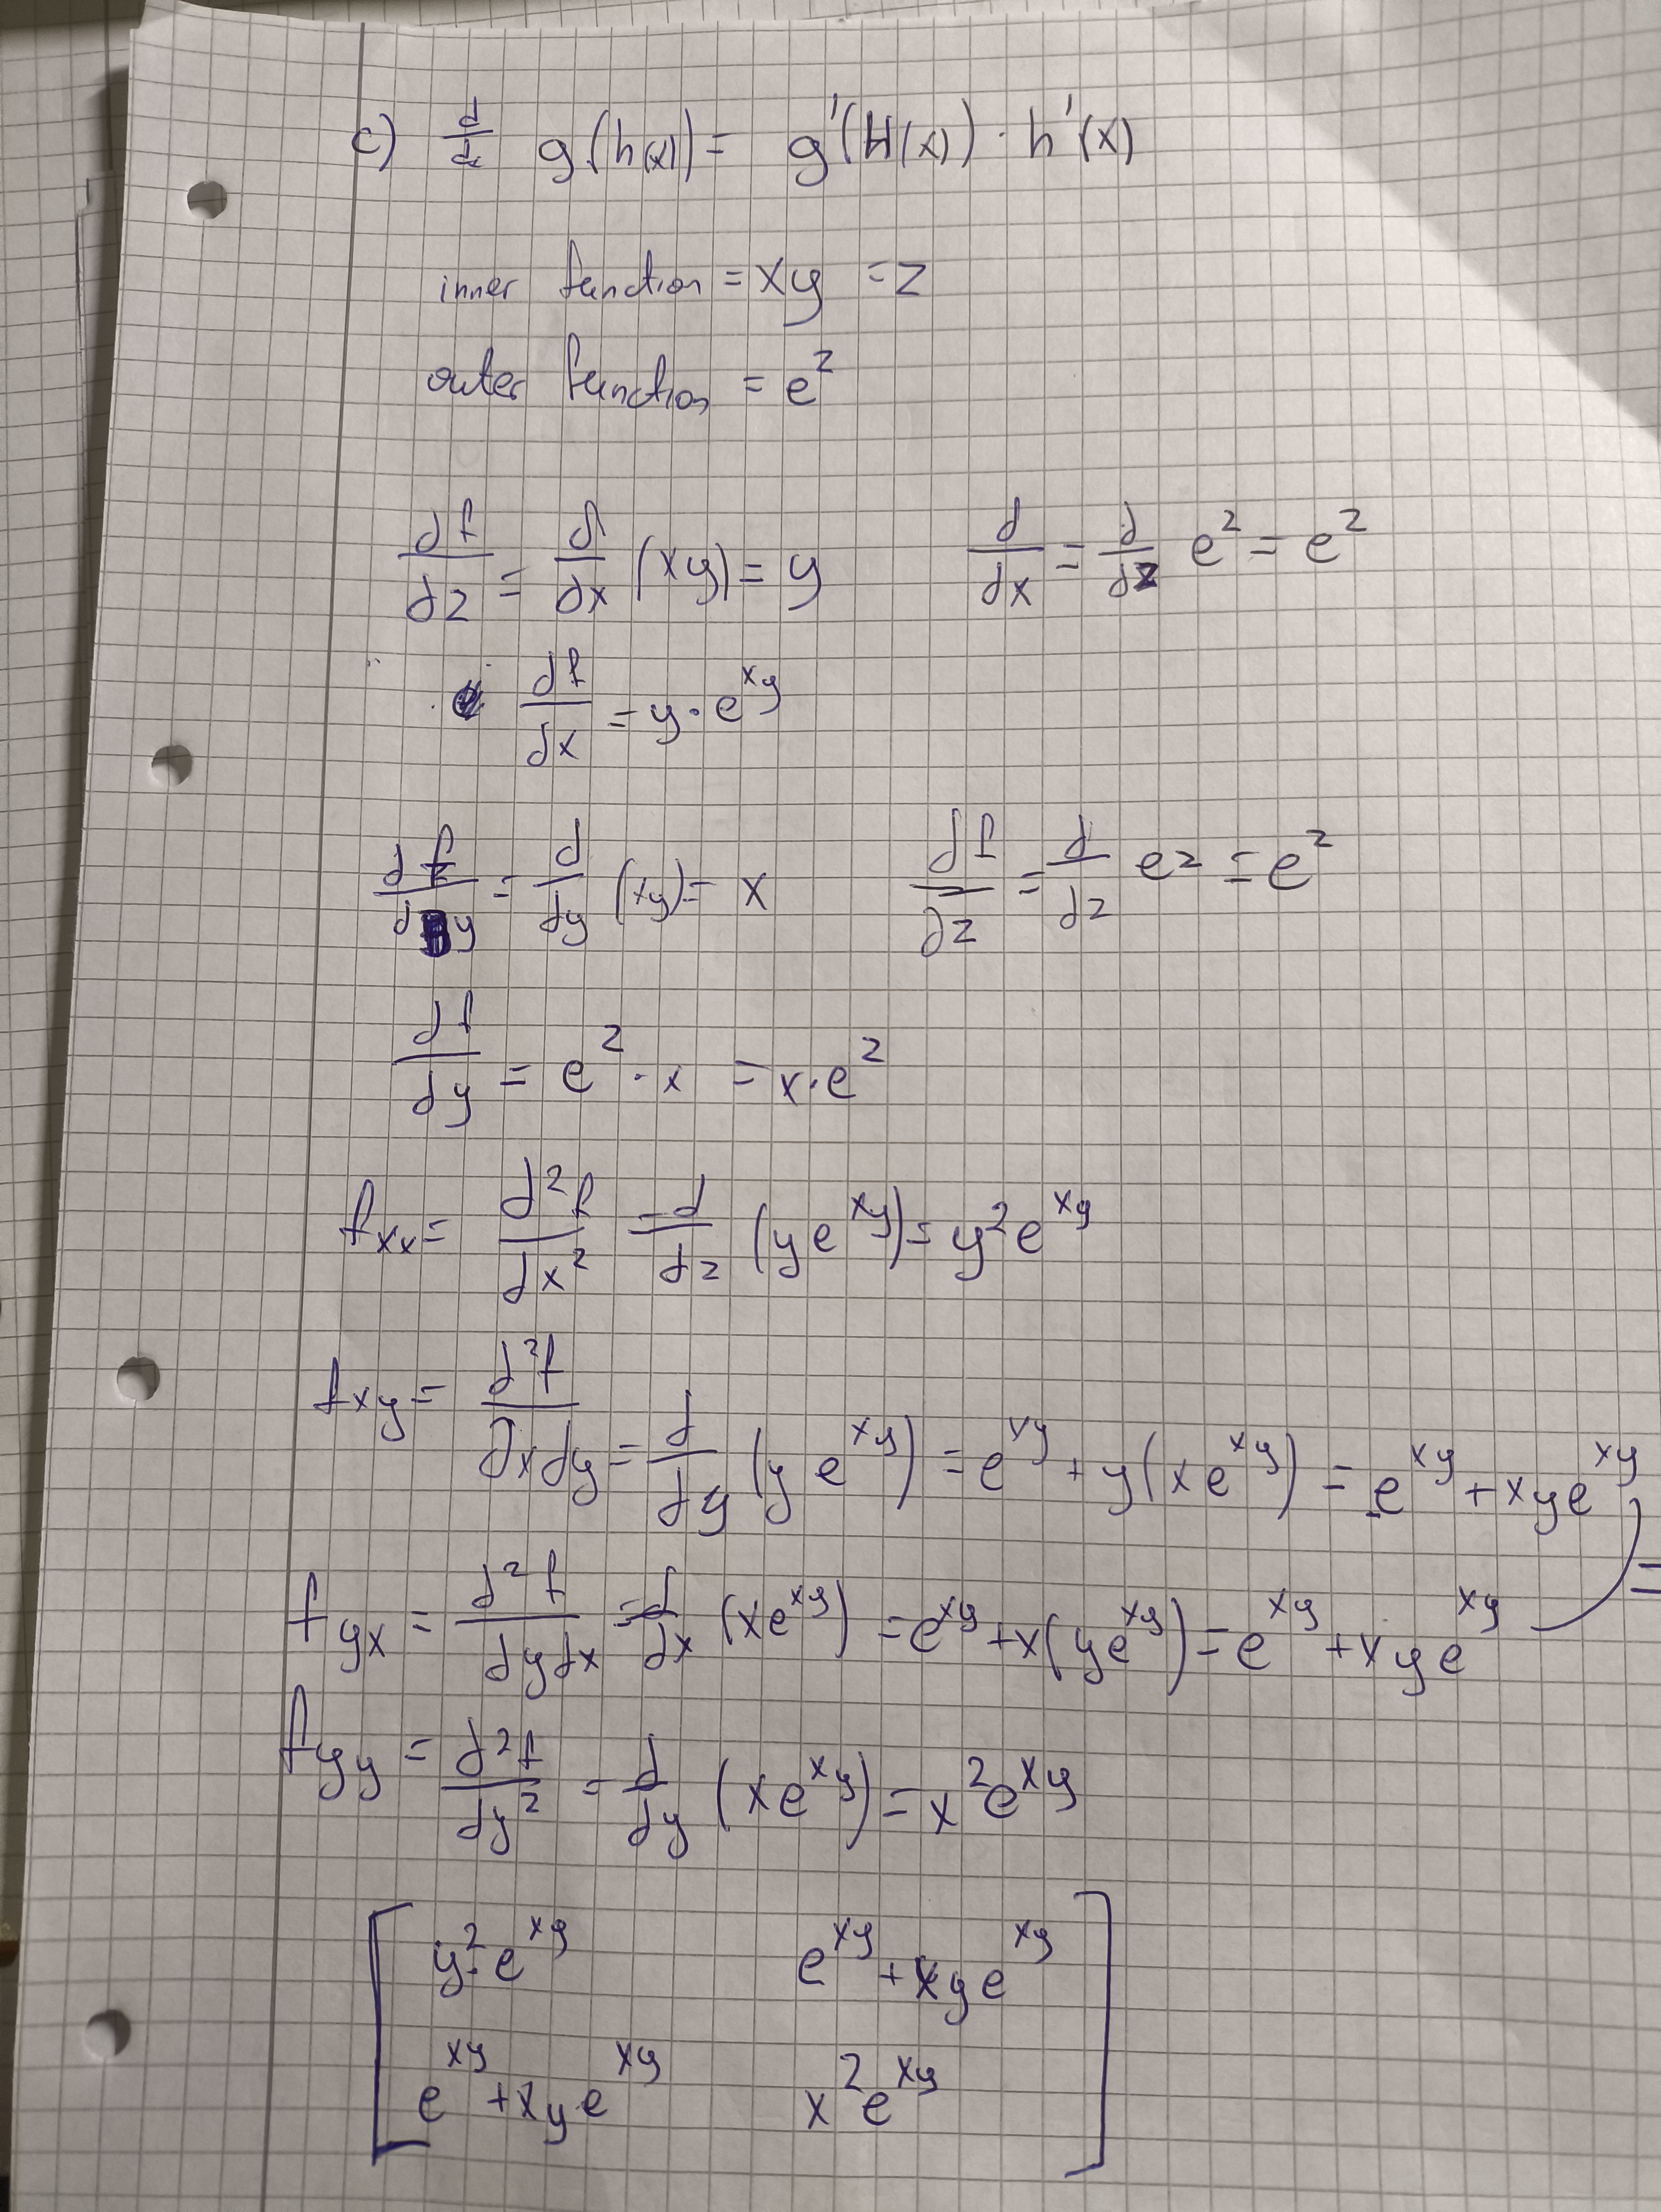 c) d/dx g(h(x)) = g'(H(x)) · h'(x)
inner function = xy = z
outer function = e^z
df/dz = d/dx (xy) = y    d/dx = d/dz e^z = e^z
df/dx = y · e^xy
df/dy = d/dy (xy) = x    df/dz = d/dz ez = e^z
df/dy = e^z · x = x · e^z
fxx = d²f/dx² = d/dz (ye^xy) = y²e^xy
fxy = d²f/∂xdy = d/dy (ye^xy) = e^xy + y(xe^xy) = e^xy + xye^xy
fyx = d²f/dydx = d/dx (xe^xy) = e^xy + x(ye^xy) = e^xy + xye^xy =
fyy = d²f/dy² = d/dy (xe^xy) = x²e^xy
[ y²·e^xy    e^xy + xye^xy
e^xy + xye^xy    x²e^xy ]